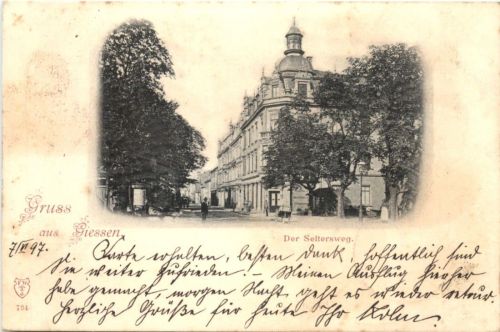 Gruss
aus Giessen.
Der Seltersweg.
7/VI 97.
Karte erhalten, besten Dank, hoffentlich sind
Sie weiter zufrieden! – Meinen Ausflug hierher
habe gemacht, morgen Nacht geht es wieder retour
Herzliche Grüße für heute Ihr
794